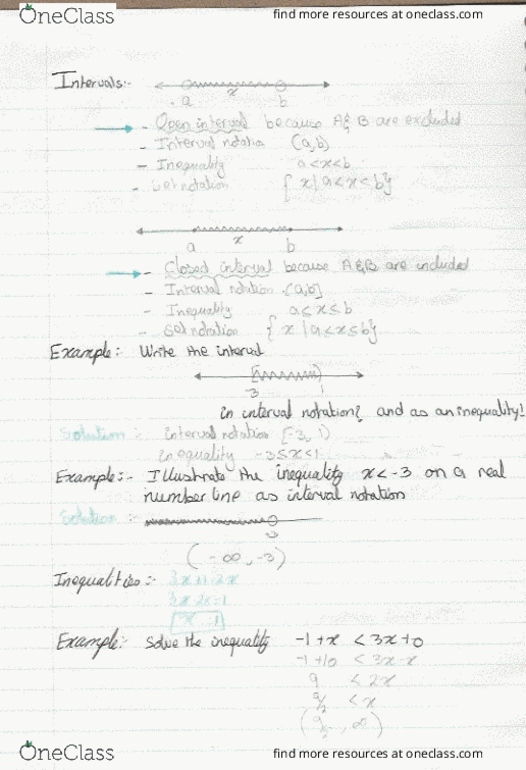 OneClass
find more resources at oneclass.com
Intervals:-
x
a b
- Open interval because A & B are excluded
- Interval notation (a,b)
- Inequality a<x<b
- Set notation { x | a<x<b}
x
a b
- Closed interval because A&B are included
- Interval notation [a,b]
- Inequality a≤x≤b
- Set notation { x | a≤x≤b}
Example:- Write the interval
-3 1
in interval notation? and as an inequality!
Solution:- interval notation [-3, 1)
inequality -3≤x<1
Example:- Illustrate the inequality x<-3 on a real
number line as interval notation
Solution:-
(-∞, -3)
Inequalities:-
Example:- Solve the inequality -1+x < 3x+0
-1+10 < 3x-x
9 < 2x
9/2 < x
(9/2, ∞)
OneClass
find more resources at oneclass.com